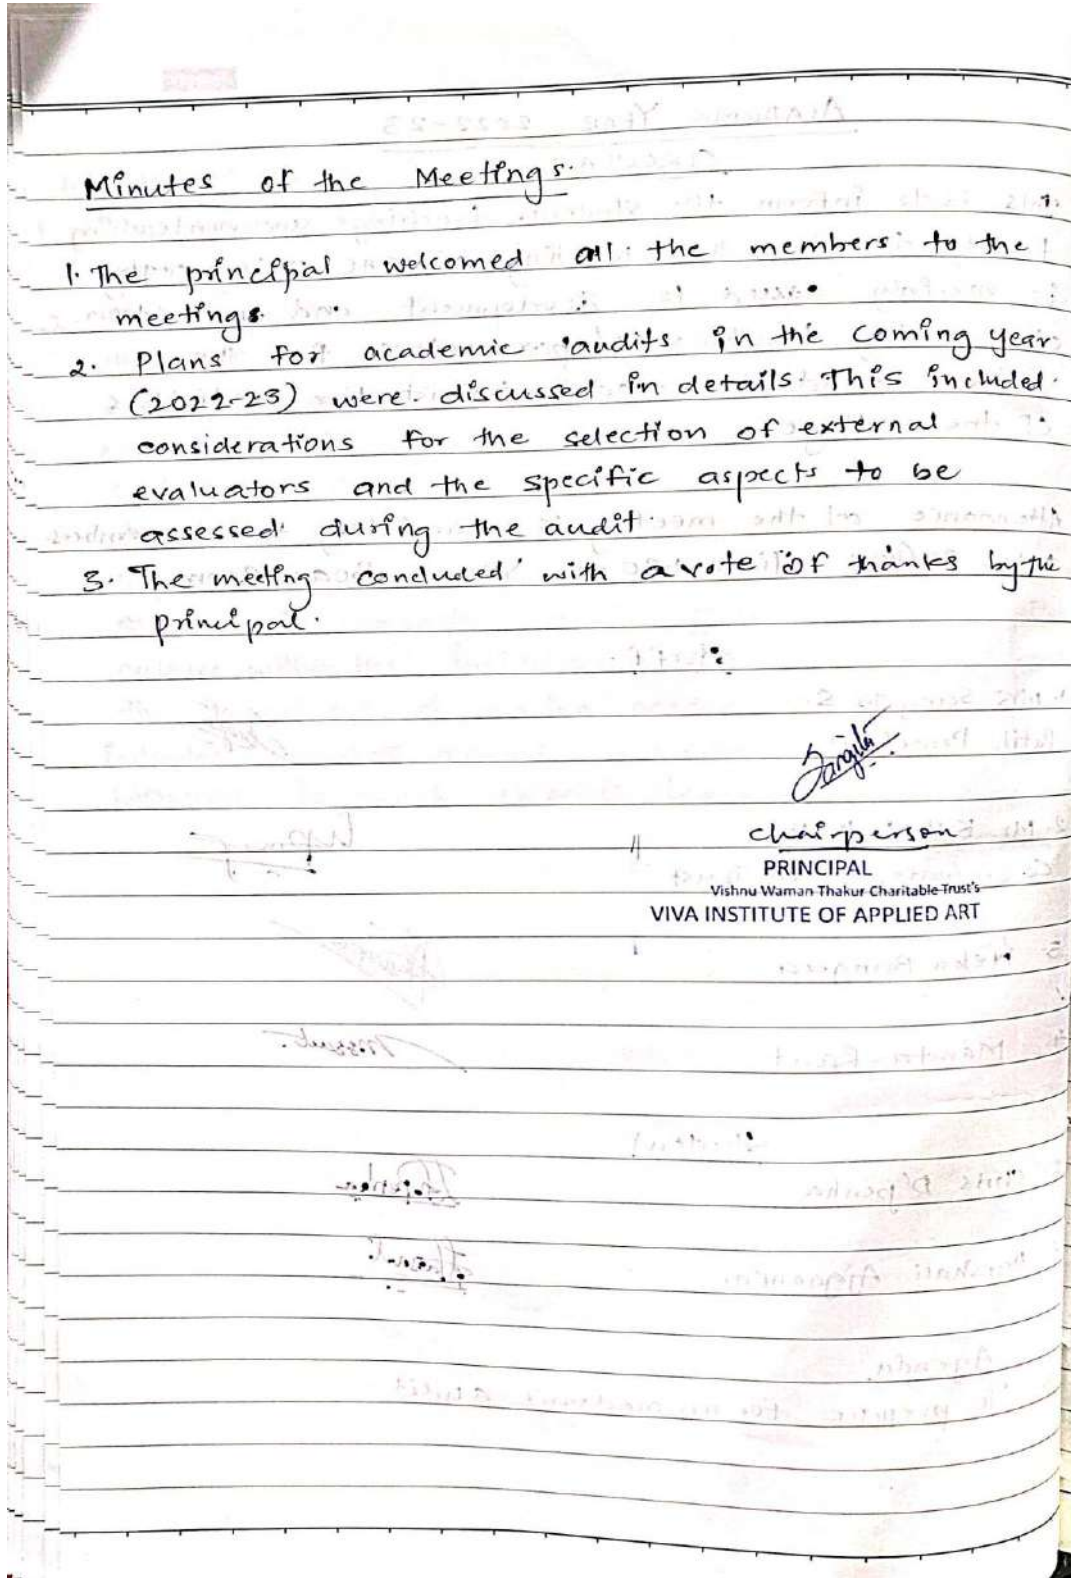 Minutes of the Meetings.
1. The principal welcomed all the members to the
meetings.
2. Plans for academic audits in the coming year
(2022-23) were discussed in details. This included
considerations for the selection of external
evaluators and the specific aspects to be
assessed during the audit.
3. The meeting concluded with a vote of thanks by the
principal.
Sangita
Chairperson
PRINCIPAL
Vishnu Waman Thakur Charitable Trust's
VIVA INSTITUTE OF APPLIED ART